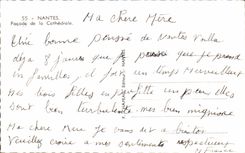 55. - NANTES.
Façade de la Cathédrale.
Ma chère Mère
Une bonne pensée de Nantes voilà
déjà 8 jours que je que je prend
en familles, il fait un temps merveilleux
mes deux filles en profite un peu elles
sont bien turbulente mes bien mignonne
Ma chère Mère je vous dit a bientot
Veuillez croire a mes sentiments respectueux